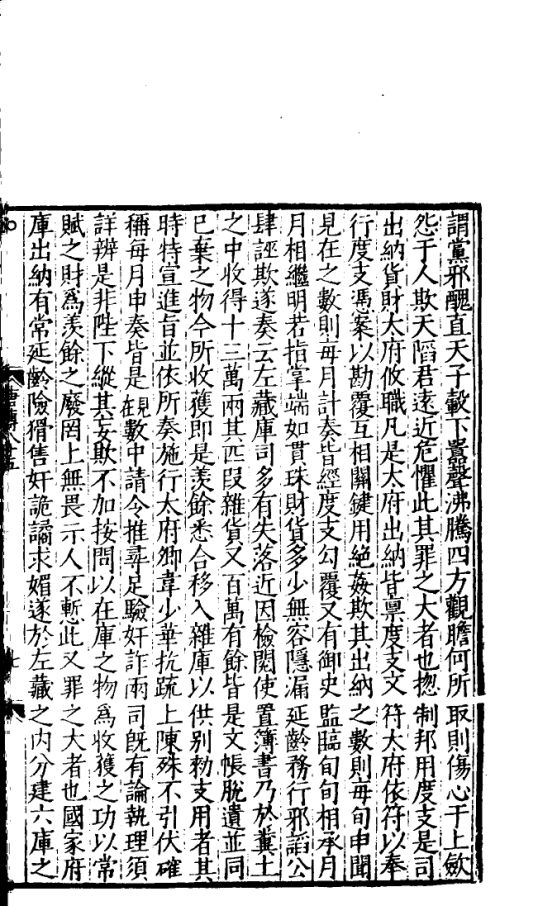 謂黨邪醜直天子轂下囂聲沸騰四方觀瞻何所取則傷心于上斂
怨于人欺天䧟君遠近危懼此其罪之大者也揔制邦用度支是司
出納貨財太府攸職凡是太府出納皆禀度支文符太府依符以奉
行度支憑案以勘覆互相關鍵用絶姦欺其出納之數則每旬申聞
見在之數則每月計奏皆經度支勾覆又有御史監臨旬旬相承月
月相繼明若指掌端如貫珠財貨多少無容隱漏延齡務行邪諂公
肆誣欺遂奏云左藏庫司多有失落近因檢閱使置簿書乃於糞土
之中收得十三萬兩其匹段雜貨又百萬有餘皆是文帳脫遺並同
已棄之物今所收獲即是羡餘悉合移入雜庫以供别勑支用者其
時特宣進旨並依所奏施行太府卿韋少華抗疏上陳殊不引伏確
稱每月申奏皆是見在數中請令推尋足驗奸詐兩司旣有論執理須
詳辨是非陛下縱其妄欺不加按問以在庫之物爲收獲之功以常
賦之財爲羡餘之廢罔上無畏示人不慙此又罪之大者也國家府
庫出納有常延齡險猾售奸詭譎求媚遂於左藏之内分建六庫之